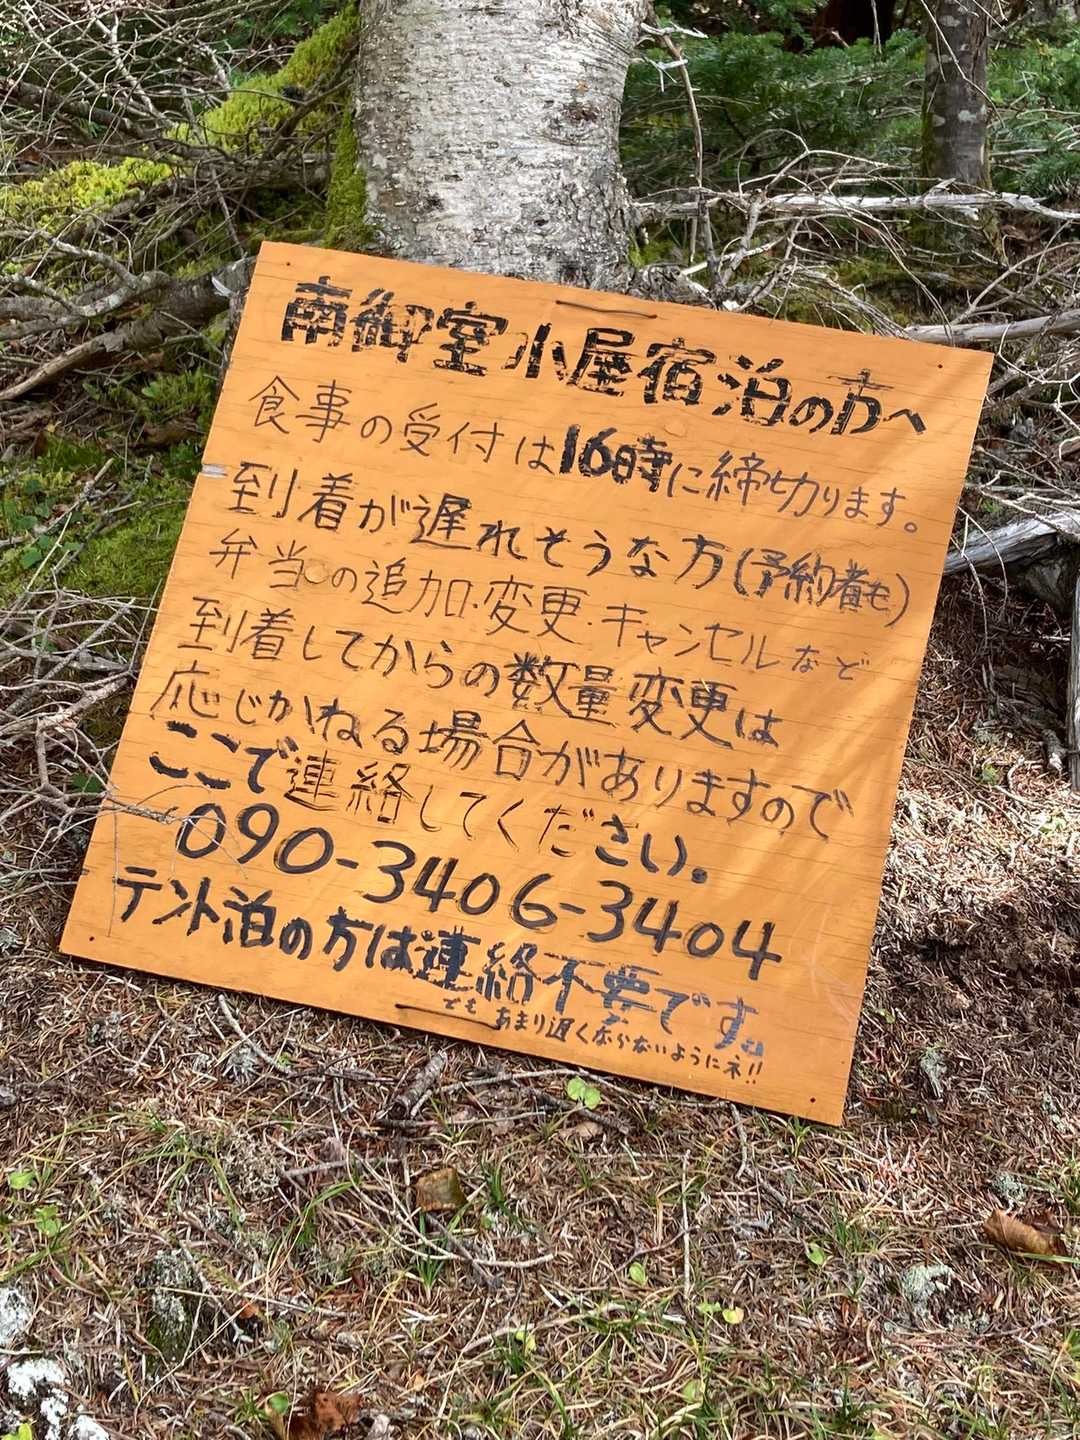 南御室小屋宿泊の方へ
食事の受付は16時に締切ります。
到着が遅れそうな方(予約者も)
弁当の追加・変更・キャンセルなど
到着してからの数量変更は
応じかねる場合がありますので
ここで連絡してください。
090-3406-3404
テント泊の方は連絡不要です。
でも あまり遅くならないようにネ!!